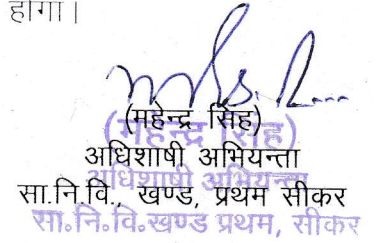 होगा।
(महेन्द्र सिंह)
(महेन्द्र सिंह)
अधिशाषी अभियन्ता
अधिशाषी अभियन्ता
सा.नि.वि., खण्ड, प्रथम सीकर
सा.नि.वि.खण्ड प्रथम, सीकर